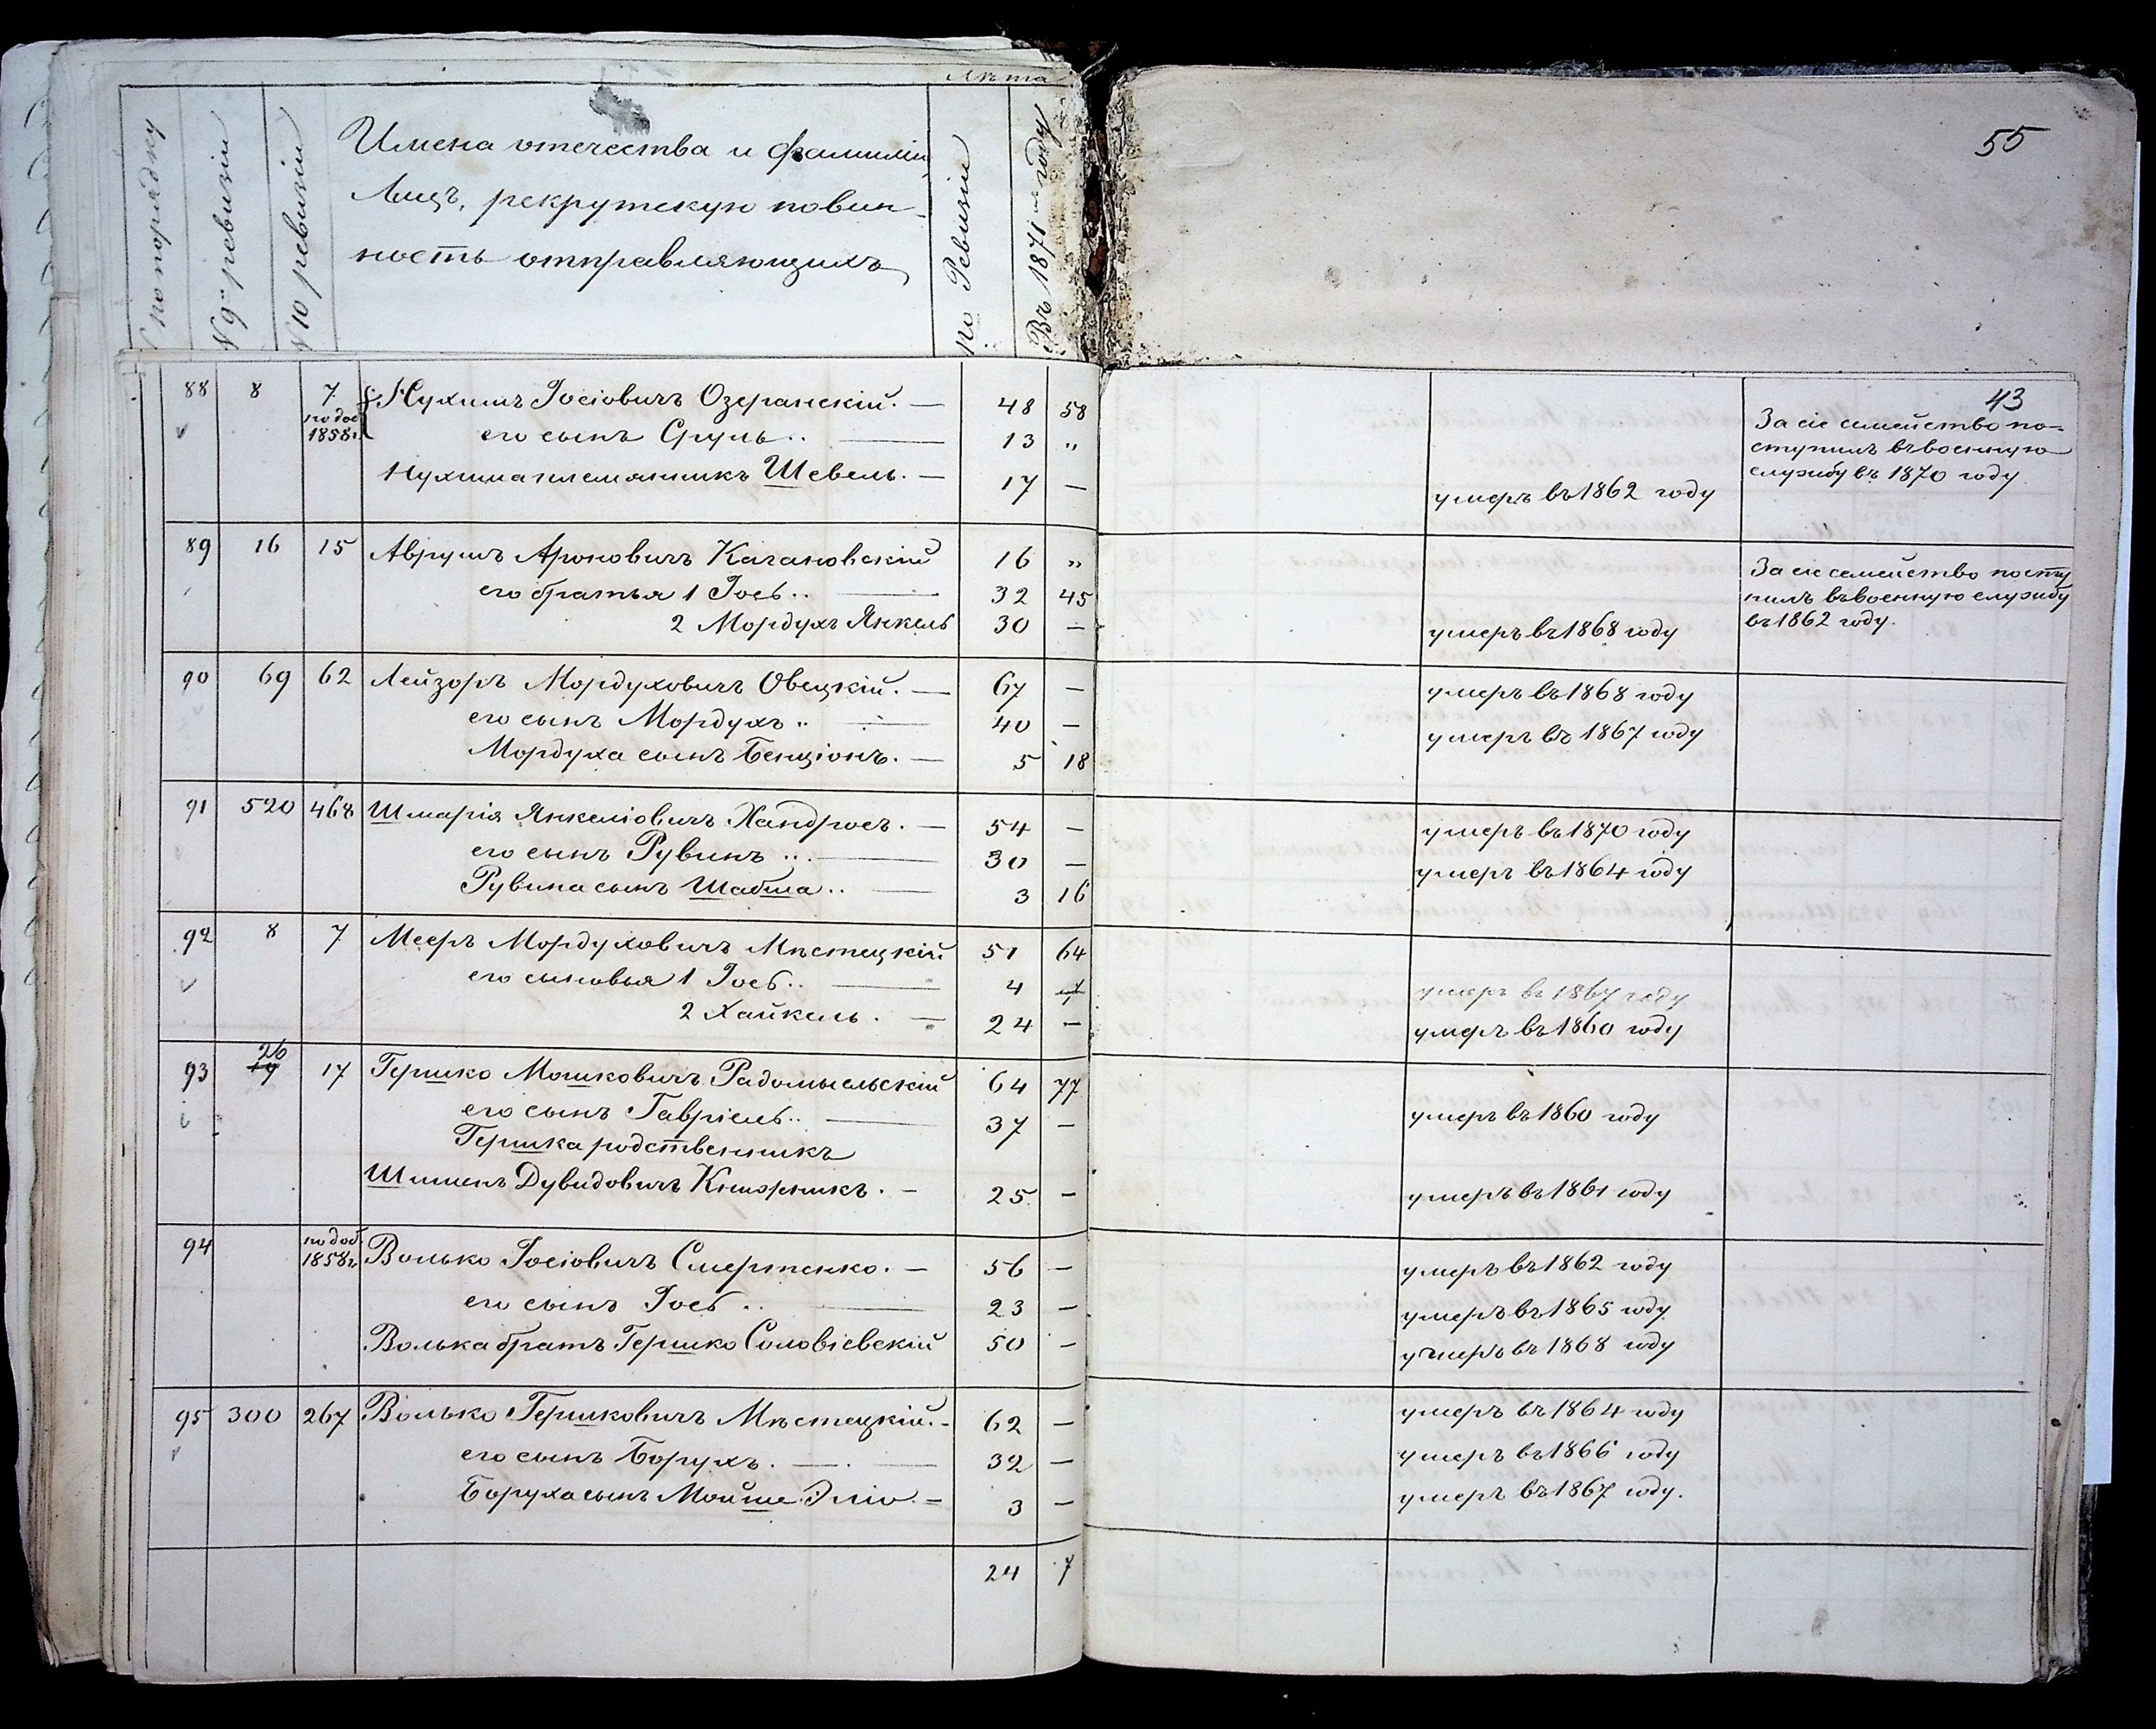 Лѣта
№ по порядку
№ 9й ревизіи
№ 10 ревизіи
Имена отечества и фамиліи
лицъ, рекрутскую повин-
ность отправляющихъ
по Ревизіи
Въ 1871м году
55
43
88 8 7 Нухимъ Іосіовичъ Озеранскій. — 48 58
по доп 1858г.
его сынъ Сруль.. — 13 „
Нухима племянникъ Шевель. — 17 — умеръ въ 1862 году
За сіе семейство по-
ступилъ въ военную
службу въ 1870 году
89 16 15 Аврумъ Ароновичъ Кагановскій 16 „
его братья 1 Іось.. — 32 45
2 Мордухъ Янкель 30 — умеръ въ 1868 году
За сіе семейство посту
пилъ въ военную службу
въ 1862 году.
90 69 62 Лейзоръ Мордуховичъ Овецкій. — 67 — умеръ въ 1868 году
его сынъ Мордухъ.. — 40 — умеръ въ 1867 году
Мордуха сынъ Бенціонъ. — 5 18
91 520 468 Шмарія Янкеліовичъ Хандросъ. — 54 — умеръ въ 1870 году
его сынъ Рувинъ... — 30 — умеръ въ 1864 году
Рувина сынъ Шабша.. — 3 16
92 8 7 Мееръ Мордуховичъ Мѣстецкій 51 64
его сыновья 1 Іось.. — 4 умеръ въ 1867 году
2 Хайкель. — 24 — умеръ въ 1860 году
93 26 19 17 Гершко Мошковичъ Радомысльскій 64 77
его сынъ Гавріель.. — 37 — умеръ въ 1860 году
Гершка родственникъ
Шимонъ Дувидовичъ — 25 — умеръ въ 1861 году
94 по доп. 1858г. Волько Іосіовичъ Смертенко. — 56 — умеръ въ 1862 году
его сынъ Іось.. — 23 — умеръ въ 1865 году
Волька братъ Гершко Соловіевскій 50 — умеръ въ 1868 году
95 300 267 Волько Гершковичъ Мѣстецкій. - 62 — умеръ въ 1864 году
его сынъ Борухъ. — 32 — умеръ въ 1866 году
Боруха сынъ Мойше Эліо. — 3 — умеръ въ 1867 году.
24 7